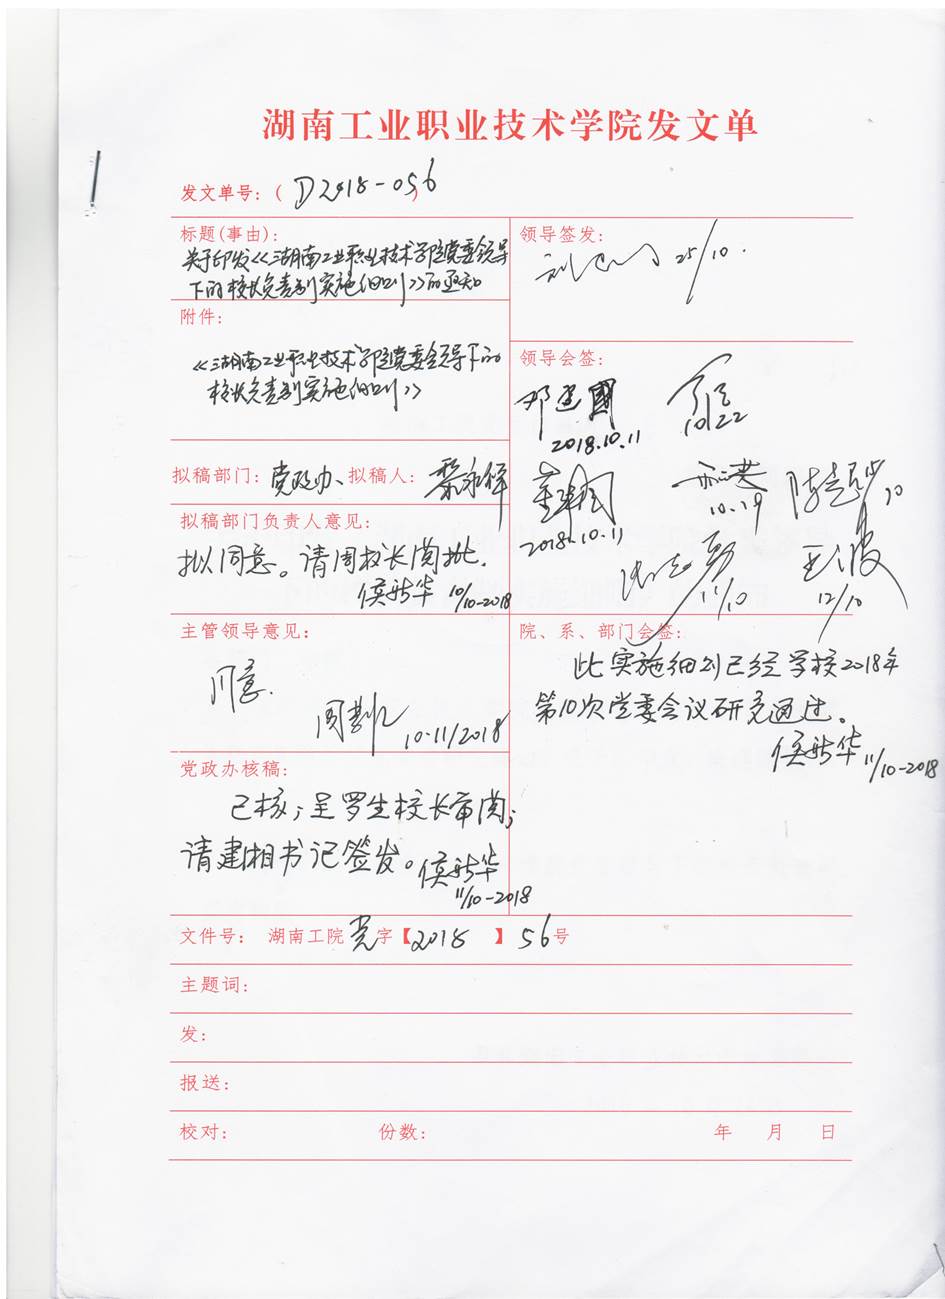 湖南工业职业技术学院发文单
发文单号：( D2018-056 )
标题(事由)：
关于印发《湖南工业职业技术学院党委领导
下的校长负责制实施细则》的通知
附件：
《湖南工业职业技术学院党委领导下的
校长负责制实施细则》
拟稿部门：党政办、拟稿人：
拟稿部门负责人意见：
拟同意。请周校长阅批.
侯新华 10/10-2018
主管领导意见：
同意.
10.11/2018
党政办核稿：
已核；呈罗生校长审阅；
请建湘书记签发。侯新华
11/10-2018
领导签发：
25/10.
领导会签：
邓建国
2018.10.11
10/22
2018.10.11
10.19
15/10
11/10
王波
12/10
院、系、部门会签：
此实施细则已经学校2018年
第10次党委会议研究通过。
侯新华 11/10-2018
文件号： 湖南工院党字【2018 】56号
主题词：
发：
报送：
校对： 份数： 年 月 日